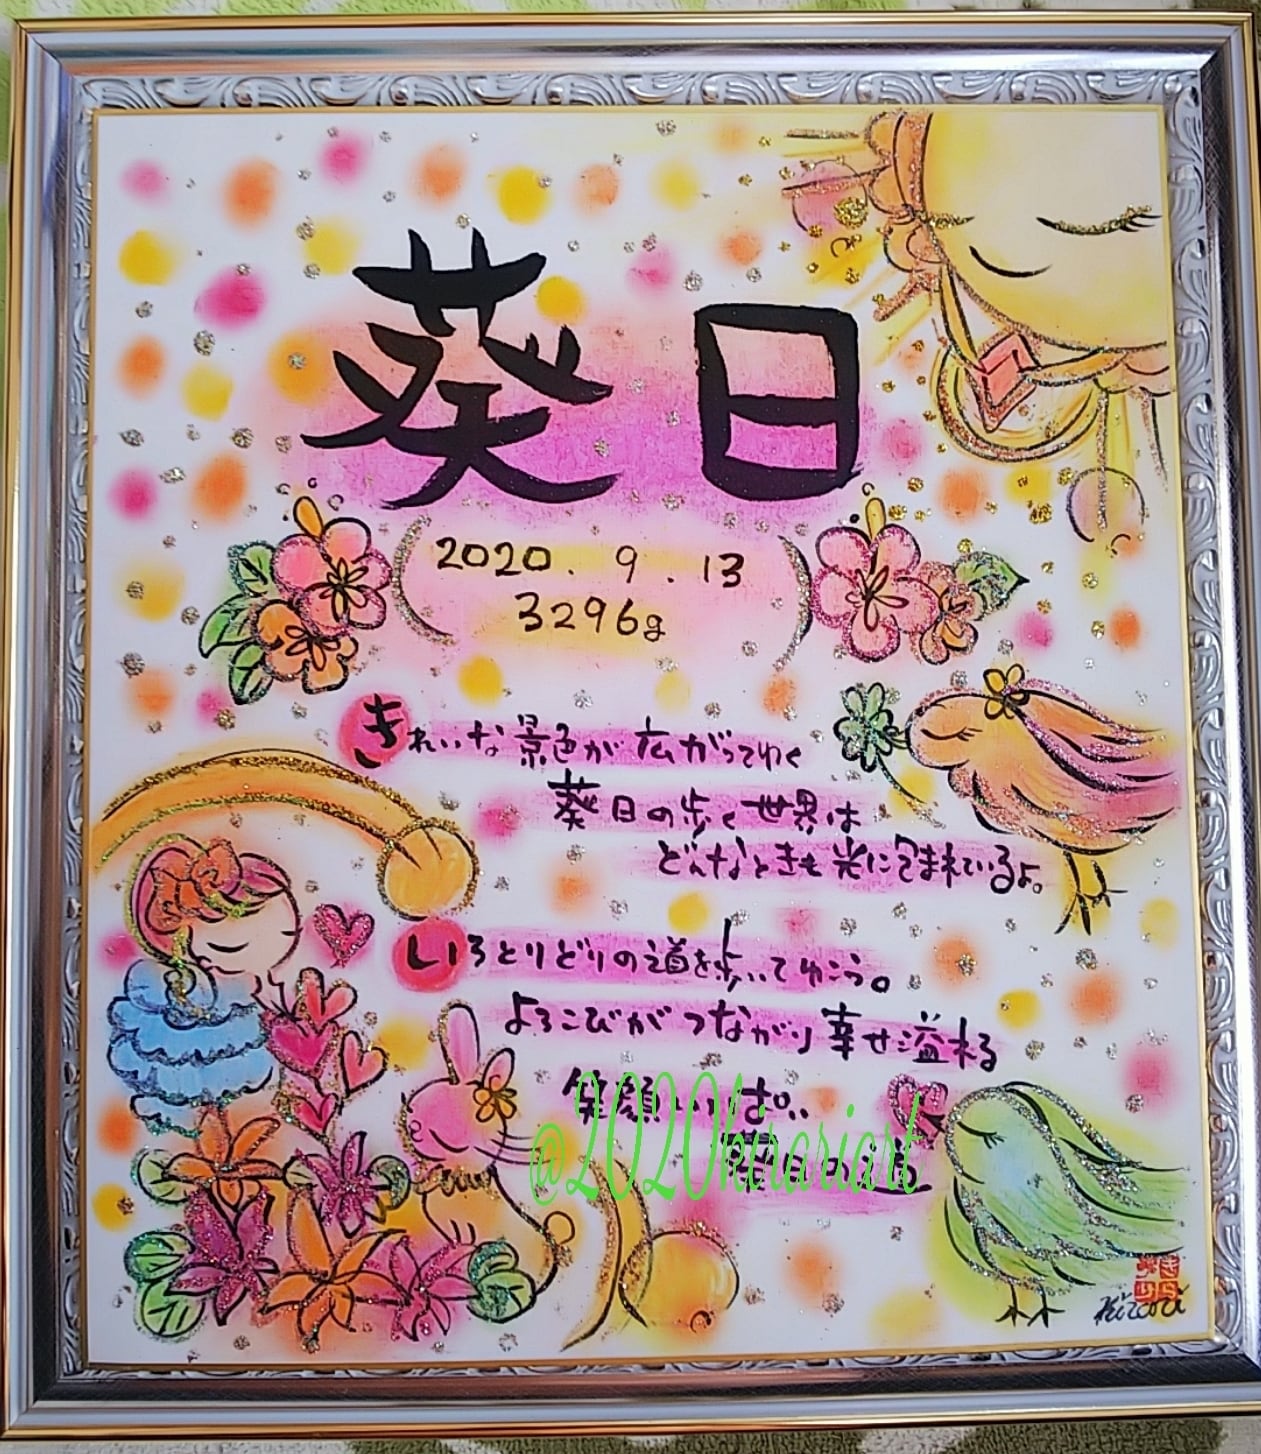 葵日
2020.9.13
3296g
きれいな景色が広がってゆく
葵日の歩く世界は
どんなときも光に包まれているよ。
いろとりどりの道を歩いてゆこう。
よろこびがつながり幸せ溢れる
笑顔いっぱい
葵日の道
@2020kirariart
Kirari